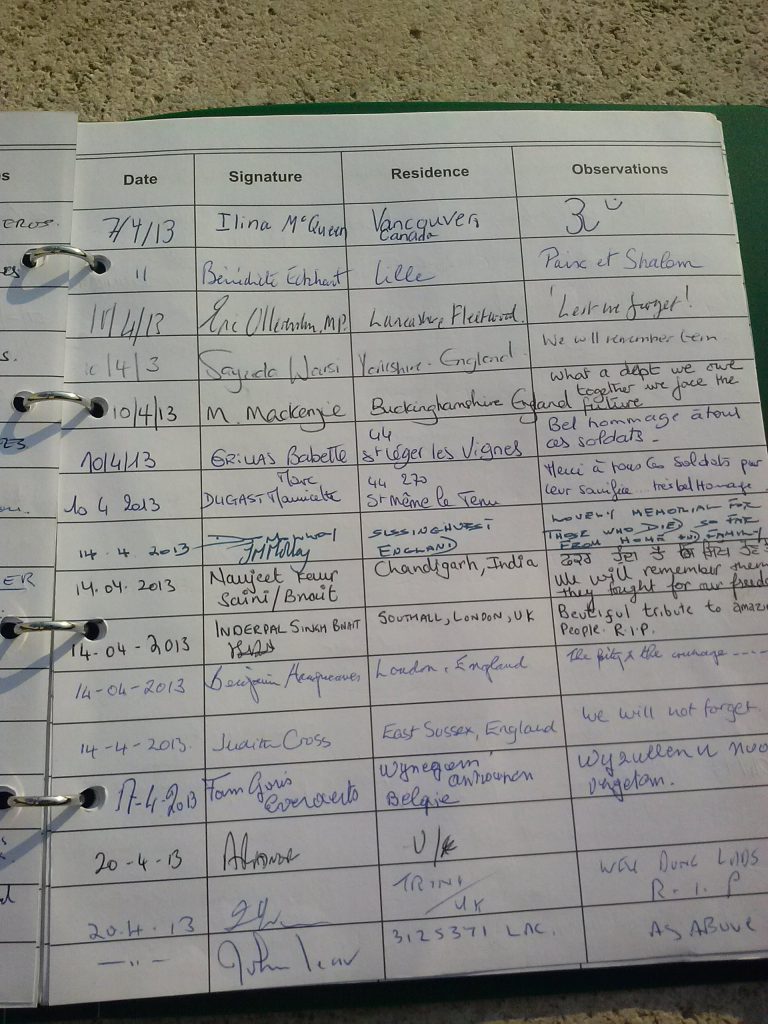 s Date Signature Residence Observations
EROS. 7/4/13 Ilina McQueen Vancouver, Canada
" Bénédicte Eckhart Lille Paix et Shalom
11/4/13 Eric Ollerenshaw, MP. Lancashire, Fleetwood. 'Lest we forget'!
s. 10/4/3 Sayeeda Warsi Yorkshire - England We will remember
10/4/13 M. Mackenzie Buckinghamshire England what a dept we owe
together we face the
future
10/4/13 GRILLAS Babette 44
St Léger les Vignes Bel hommage à tous
ces soldats -
10 4 2013 Marc
DUGAST Mauricette 44 270
St Même le Tenu Merci à tous ces soldats pour
leur sacrifice
14.4.2013 SISSINGHURST
ENGLAND LOVELY MEMORIAL FOR
THOSE WHO DIED SO FAR
FROM HOME AND FAMILY
ER 14.04.2013 Navjeet Kaur
Saini/Bnait Chandigarh, India
We will remember them
they fought for our
14-04-2013 INDERPAL SINGH BNAIT SOUTHALL, LONDON, UK Beutiful tribute to
People. R.I.P.
14-04-2013 Benjamin Hargreaves London, England The pity & the courage ----
14-4-2013. Judith Cross East Sussex, England We will not forget
17-4-2013 Fam Goris
Everaerts Wijnegem
Antwerpen
Belgie Wij zullen u
vergeten.
20-4-13 U/K
20.4.13 TRINI
/UK WELL DONE LADS
R.I.P
— " — John 3125371 LAC. AS ABOVE